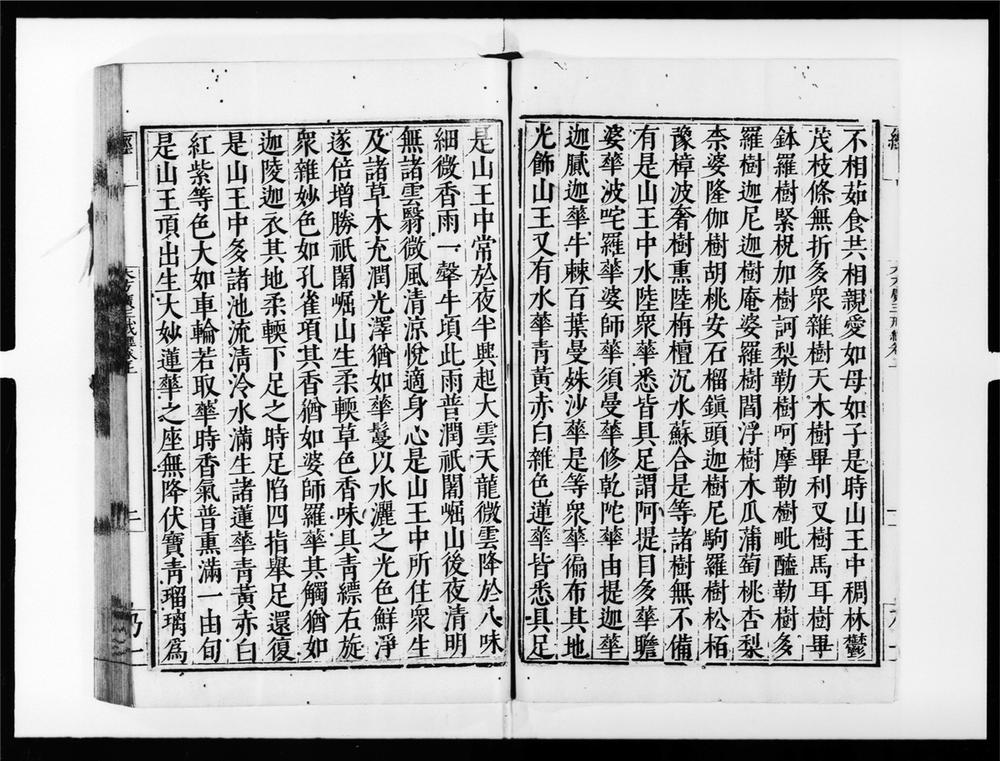 不相茹食共相親愛如母如子是時山王中稠林鬱
茂枝條無折多衆雜樹天木樹畢利叉樹馬耳樹畢
鉢羅樹緊柷加樹訶梨勒樹呵摩勒樹毗醯勒樹多
羅樹迦尼迦樹庵婆羅樹閻浮樹木瓜蒲萄桃杏梨
柰婆隆伽樹胡桃安石榴鎮頭迦樹尼駒羅樹松栢
豫樟波奢樹熏陸栴檀沉水蘇合是等諸樹無不備
有是山王中水陸衆華悉皆具足謂阿提目多華瞻
婆華波咤羅華婆師華須曼華修乾陀華由提迦華
迦膩迦華牛棘百葉曼姝沙華是等衆華徧布其地
光飾山王又有水華青黃赤白雜色蓮華皆悉具足
是山王中常於夜半興起大雲天龍微雲降於八味
細微香雨一𤚲牛頃此雨普潤祇闍崛山後夜清明
無諸雲翳微風清涼悅適身心是山王中所住衆生
及諸草木充潤光澤猶如華鬘以水灑之光色鮮淨
遂倍增勝祇闍崛山生柔輭草色香味具青縹右旋
衆雜妙色如孔雀項其香猶如婆師羅華其觸猶如
迦陵迦衣其地柔輭下足之時足陷四指舉足還復
是山王中多諸池流清泠水滿生諸蓮華青黃赤白
紅紫等色大如車輪若取華時香氣普熏滿一由旬
是山王頂出生大妙蓮華之座無降伏寶青瑠璃爲